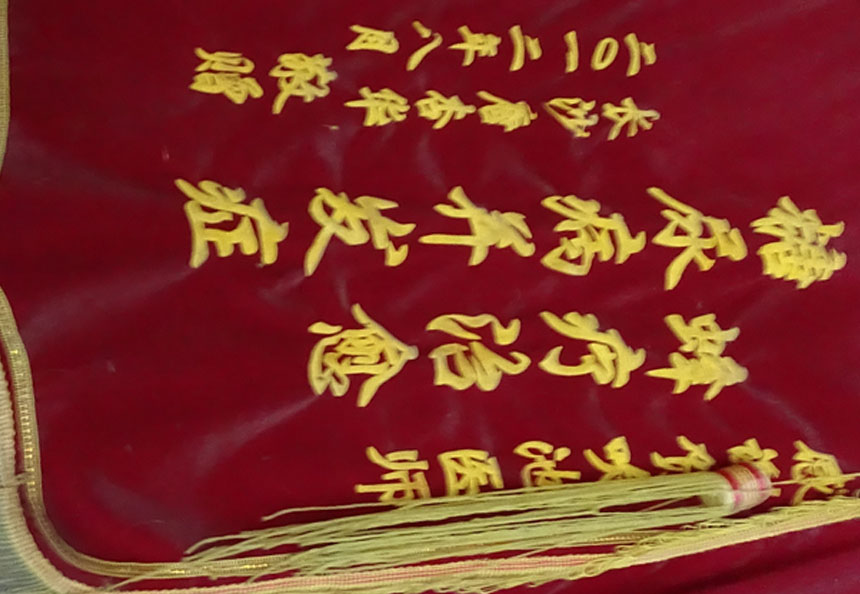 感 医师
蜂疗治愈
糖尿病并发症
长沙唐 华 敬赠
二〇一二年八月